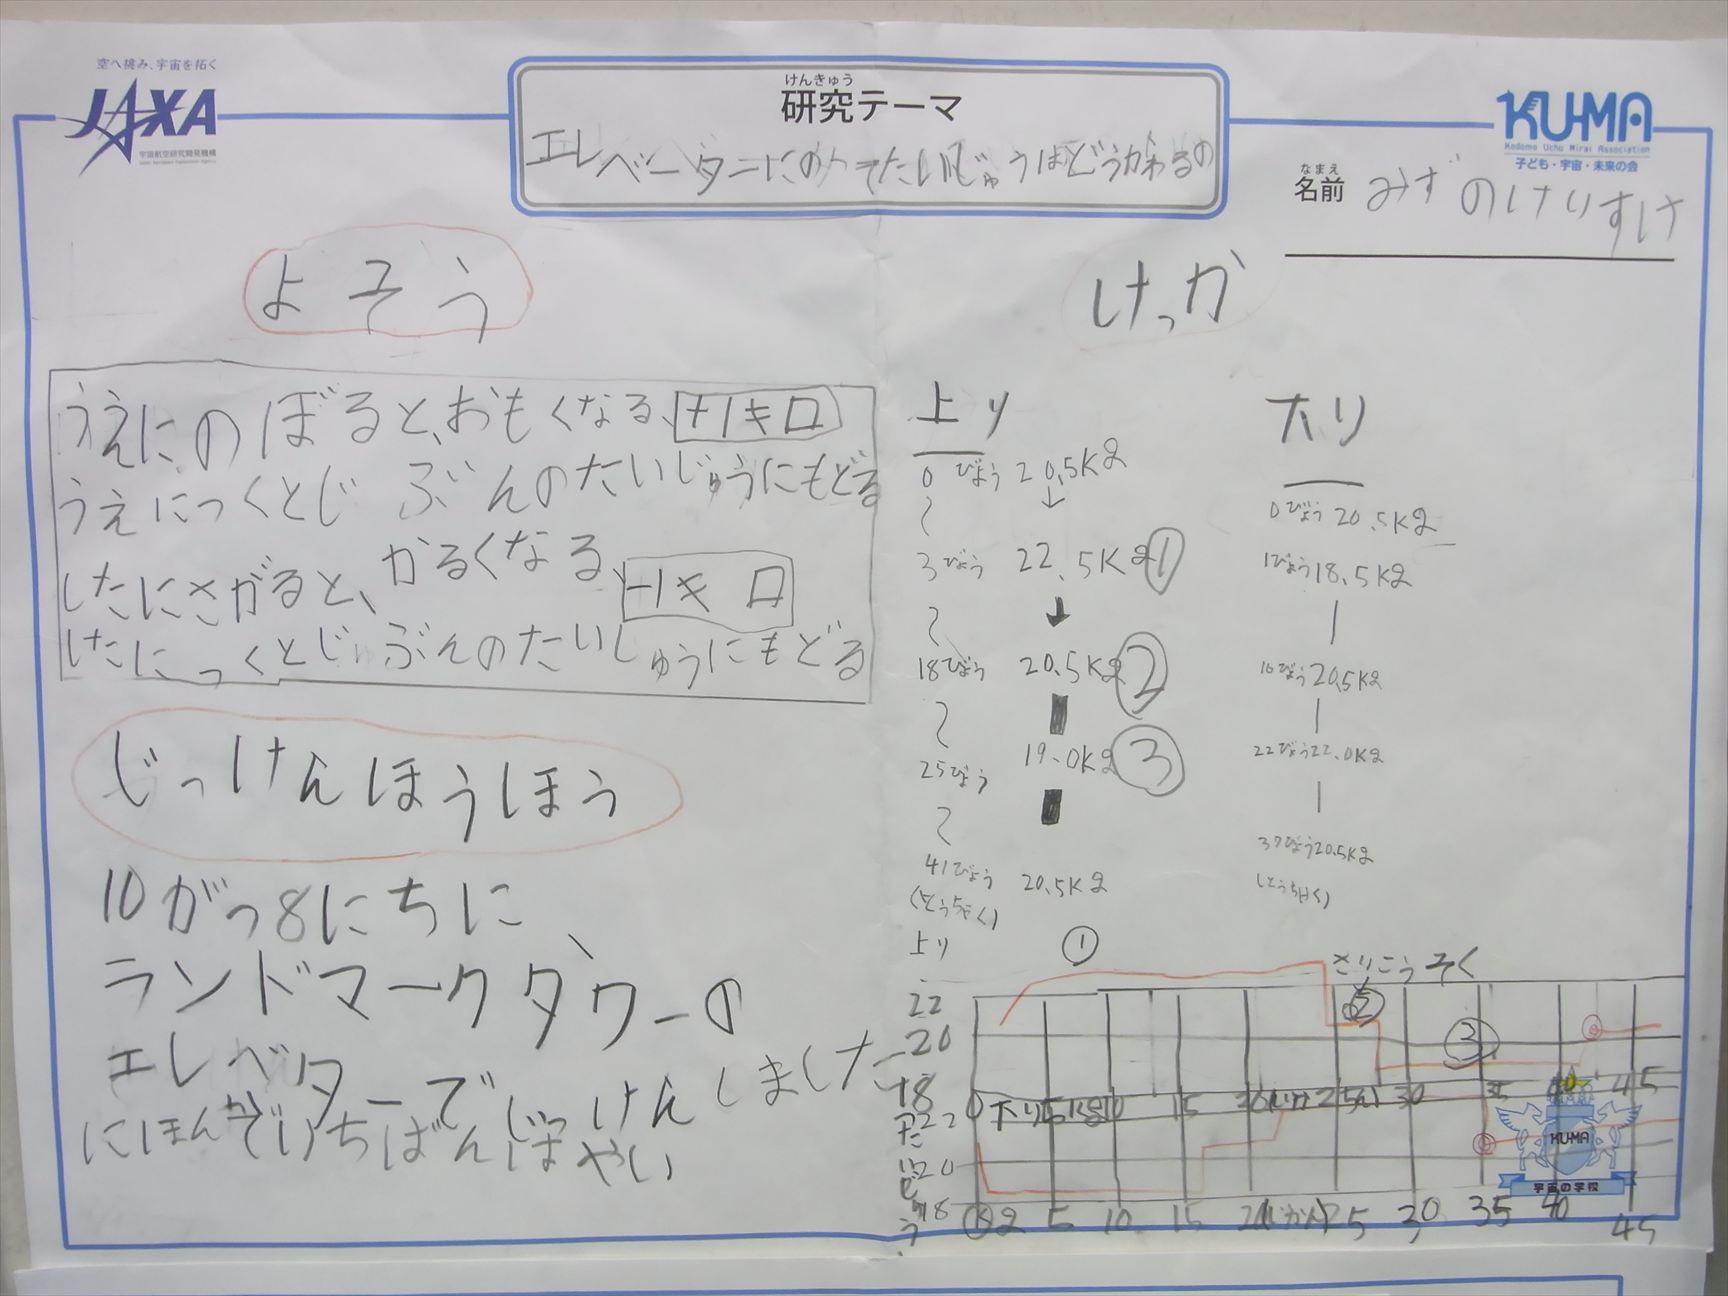 空へ挑み、宇宙を拓く
JAXA
宇宙航空研究開発機構
けんきゅう
研究テーマ
エレベーターにのってたいじゅうはどうかわるの
KU-MA
Kodomo Uchu Mirai Association
子ども・宇宙・未来の会
なまえ
名前 みずのけいすけ
よそう
うえにのぼると、おもくなる、+1キロ
うえにつくとじぶんのたいじゅうにもどる
したにさがると、かるくなる、-1キロ
したにつくとじゅぶんのたいしゅうにもどる
じっけんほうほう
10がつ8にちに、
ランドマークタワーの
エレベーターでじっけんしました
にほんでいちばんはやい
けっか
上り
0びょう 20.5Kg
↓
3びょう 22.5Kg ①
18びょう 20.5Kg ②
25びょう 19.0Kg ③
41びょう 20.5Kg
(とうちゃく)
下り
0びょう 20.5Kg
1びょう 18.5Kg
16びょう 20.5Kg
22びょう 22.0Kg
37びょう 20.5Kg
(とうちゃく)
上り
①
さいこうそく
②
③
22
20
18
0 5 10 15 20 (じかん) 25 30 35 40 45
下り
22
20
18
たいじゅう
Kg 5 10 15 20 (じかん) 25 30 35 40 45
KUMA
宇宙の学校